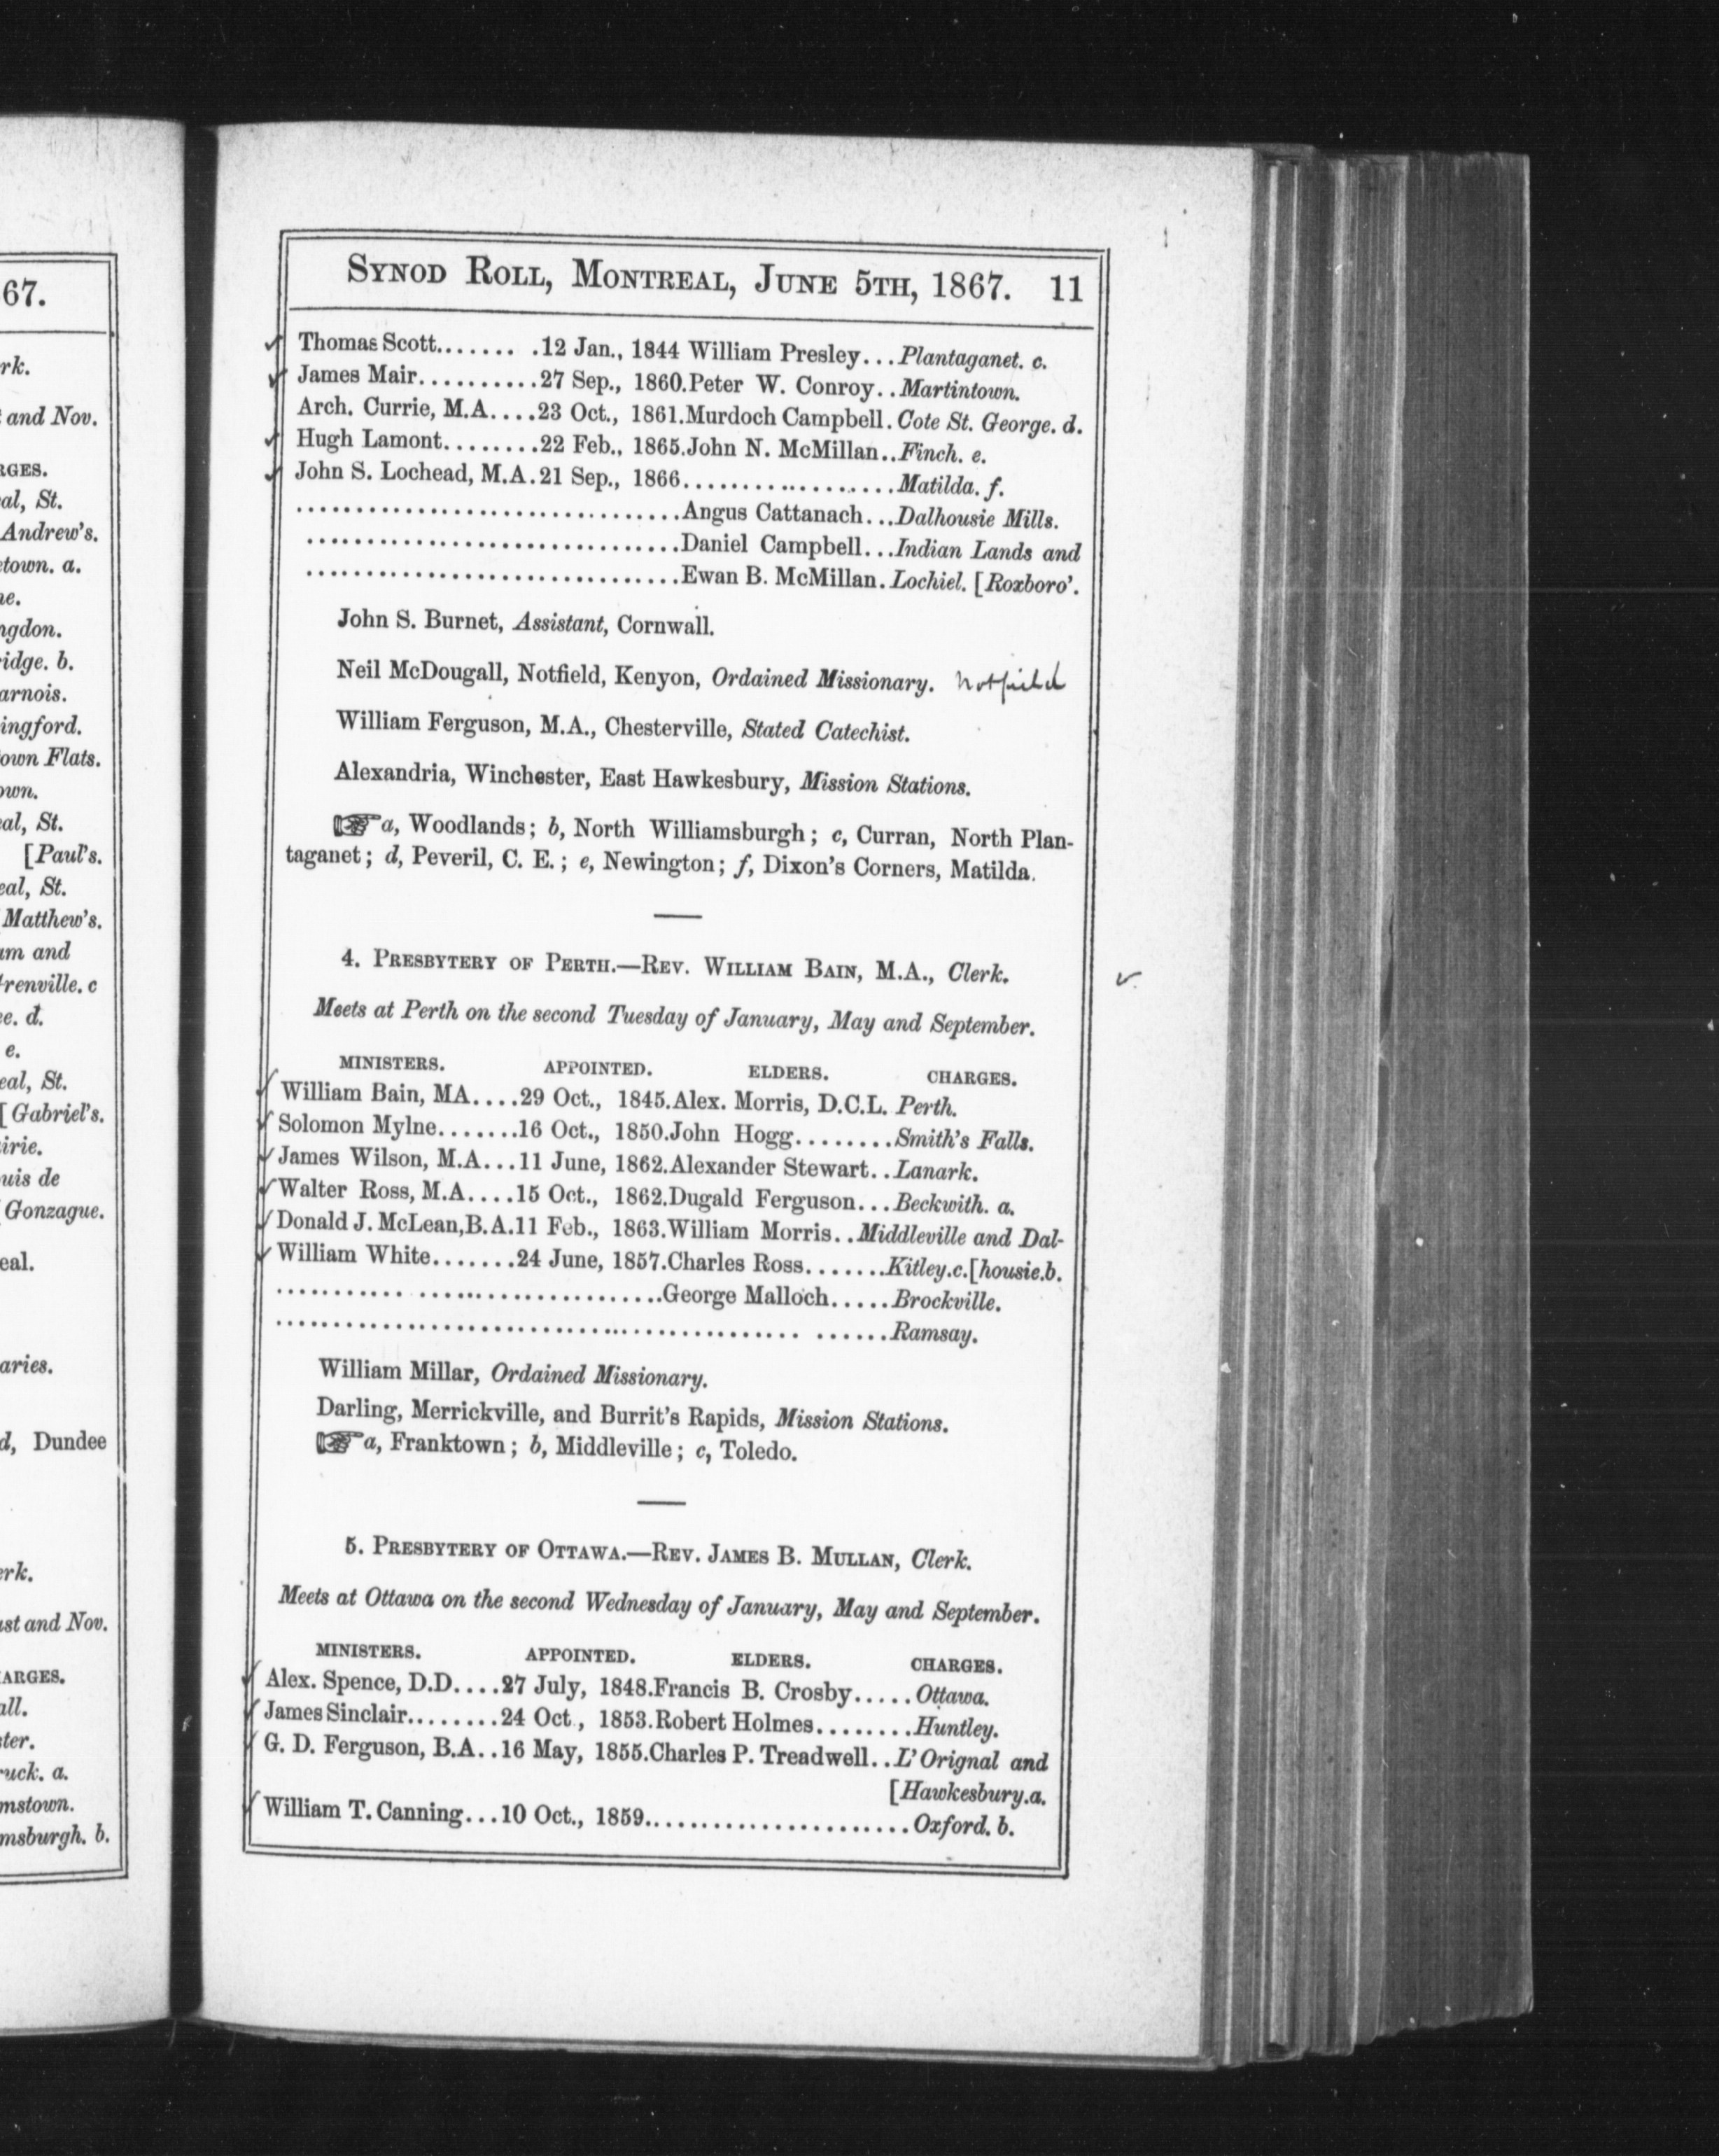 67.
rk.
and Nov.
RGES.
al, St.
Andrew's.
town. a.
ne.
ngdon.
idge. b.
arnois.
ingford.
own Flats.
own.
eal, St.
[Paul's.
eal, St.
Matthew's.
am and
Grenville. c
ee. d.
e.
eal, St.
[Gabriel's.
irie.
uis de
Gonzague.
eal.
aries.
d, Dundee
erk.
ust and Nov.
HARGES.
all.
ster.
ruck. a.
mstown.
msburgh. b.
SYNOD ROLL, MONTREAL, JUNE 5TH, 1867. 11
✓ Thomas Scott....... .12 Jan., 1844 William Presley...Plantaganet. c.
✓ James Mair..........27 Sep., 1860.Peter W. Conroy..Martintown.
Arch. Currie, M.A....23 Oct., 1861.Murdoch Campbell.Cote St. George. d.
✓ Hugh Lamont........22 Feb., 1865.John N. McMillan..Finch. e.
✓ John S. Lochead, M.A.21 Sep., 1866......................Matilda. f.
.................................Angus Cattanach...Dalhousie Mills.
................................Daniel Campbell...Indian Lands and
................................Ewan B. McMillan.Lochiel. [Roxboro'.
John S. Burnet, Assistant, Cornwall.
Neil McDougall, Notfield, Kenyon, Ordained Missionary. Notfield
William Ferguson, M.A., Chesterville, Stated Catechist.
Alexandria, Winchester, East Hawkesbury, Mission Stations.
☞ a, Woodlands; b, North Williamsburgh; c, Curran, North Plan-
taganet; d, Peveril, C. E.; e, Newington; f, Dixon's Corners, Matilda.
4. PRESBYTERY OF PERTH.—REV. WILLIAM BAIN, M.A., Clerk. ✓
Meets at Perth on the second Tuesday of January, May and September.
MINISTERS. APPOINTED. ELDERS. CHARGES.
✓ William Bain, MA....29 Oct., 1845.Alex. Morris, D.C.L. Perth.
✓ Solomon Mylne.......16 Oct., 1850.John Hogg........Smith's Falls.
✓ James Wilson, M.A...11 June, 1862.Alexander Stewart..Lanark.
✓ Walter Ross, M.A....15 Oct., 1862.Dugald Ferguson...Beckwith. a.
✓ Donald J. McLean,B.A.11 Feb., 1863.William Morris..Middleville and Dal-
✓ William White.......24 June, 1857.Charles Ross.......Kitley.c.[housie.b.
.................................George Malloch.....Brockville.
.................................................Ramsay.
William Millar, Ordained Missionary.
Darling, Merrickville, and Burrit's Rapids, Mission Stations.
☞ a, Franktown; b, Middleville; c, Toledo.
5. PRESBYTERY OF OTTAWA.—REV. JAMES B. MULLAN, Clerk.
Meets at Ottawa on the second Wednesday of January, May and September.
MINISTERS. APPOINTED. ELDERS. CHARGES.
✓ Alex. Spence, D.D....27 July, 1848.Francis B. Crosby.....Ottawa.
✓ James Sinclair........24 Oct., 1853.Robert Holmes........Huntley.
✓ G. D. Ferguson, B.A..16 May, 1855.Charles P. Treadwell..L'Orignal and
[Hawkesbury.a.
✓ William T. Canning...10 Oct., 1859......................Oxford. b.